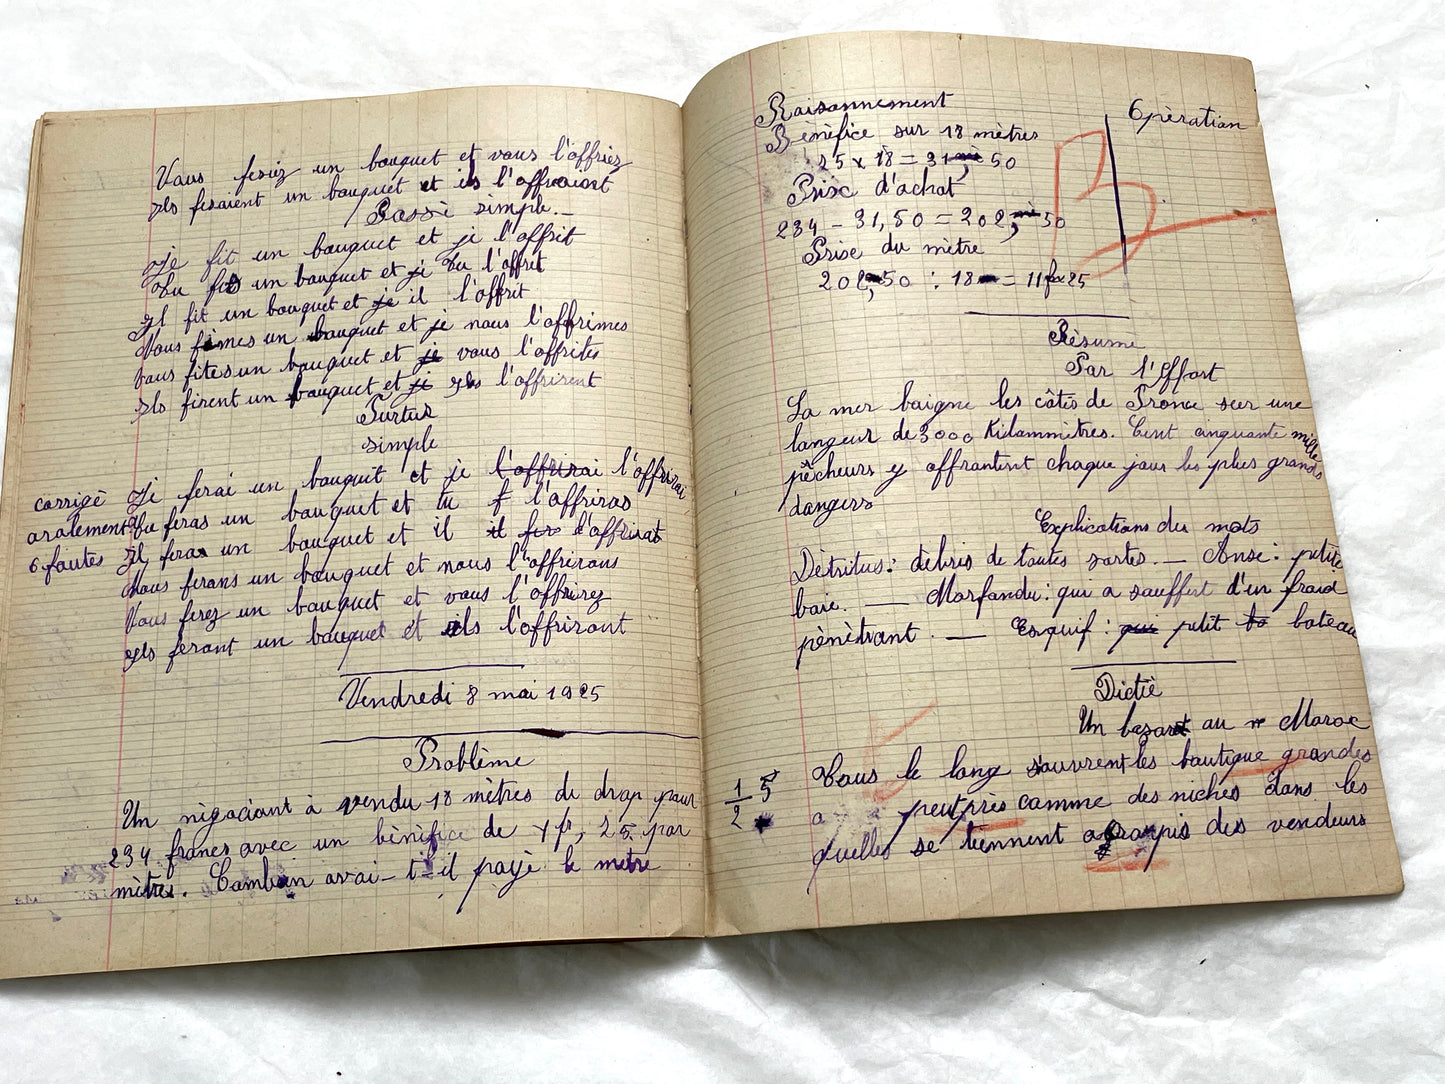 Vous fesiez un bouquet et vous l'offriez
Ils fesaient un bouquet et ils l'offraiont
Passé simple.
Je fit un bouquet et je l'offrit
Tu fis un bouquet et je tu l'offrit
Il fit un bouquet et je il l'offrit
Nous fimes un bouquet et je nous l'offrimes
Vous fites un bouquet et je vous l'offrites
Ils firent un bouquet et je ils l'offrirent
Furtur
simple
Je ferai un bouquet et je l'offrirai l'offrirai
corrigé
oralement
6 fautes
Tu feras un bouquet et tu f l'offriras
Il fera un bouquet et il il fer l'offrirat
Nous ferons un bouquet et nous l'offrirons
Vous ferez un bouquet et vous l'offrirez
Ils feront un bouquet et ils l'offriront
Vendredi 8 mai 1925
Problème
Un négociant à vendu 18 mètres de drap pour
234 francs avec un bénéfice de 1 fr, 25 par
mètres. Combien avai-t-il payé le mètre
Raisonnement
Opération
Bénéfice sur 18 mètres
25 x 18 = 31, 50
Prise d'achat
234 - 31,50 = 202, 50
Prise du mètre
202,50 : 18 = 11 fr 25
B
Résumé
Par l'Effort
La mer baigne les côtes de France sur une
longeur de 3000 Kilommètres. Cent cinquante mille
pêcheurs y affrontent chaque jour les plus grands
dangers
Explications des mots
Détritus: débris de toutes sortes. — Anse: petite
baie. — Morfondu: qui a souffert d'un froid
pénétrant. — Esquif: que petit ba bateau
Dictée
Un bazart au Maroc
Tous le long s'ouvrent les boutique grandes
1/2 5
a peut près comme des niches dans les
quelles se tiennent des vendeurs